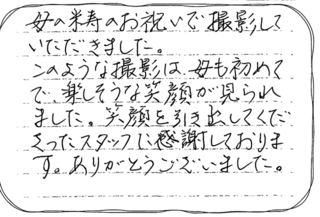 母の米寿のお祝いで撮影して
いただきました。
このような撮影は、母も初めて
で、楽しそうな笑顔が見られ
ました。笑顔を引き出してくだ
さったスタッフに感謝しておりま
す。ありがとうございました。